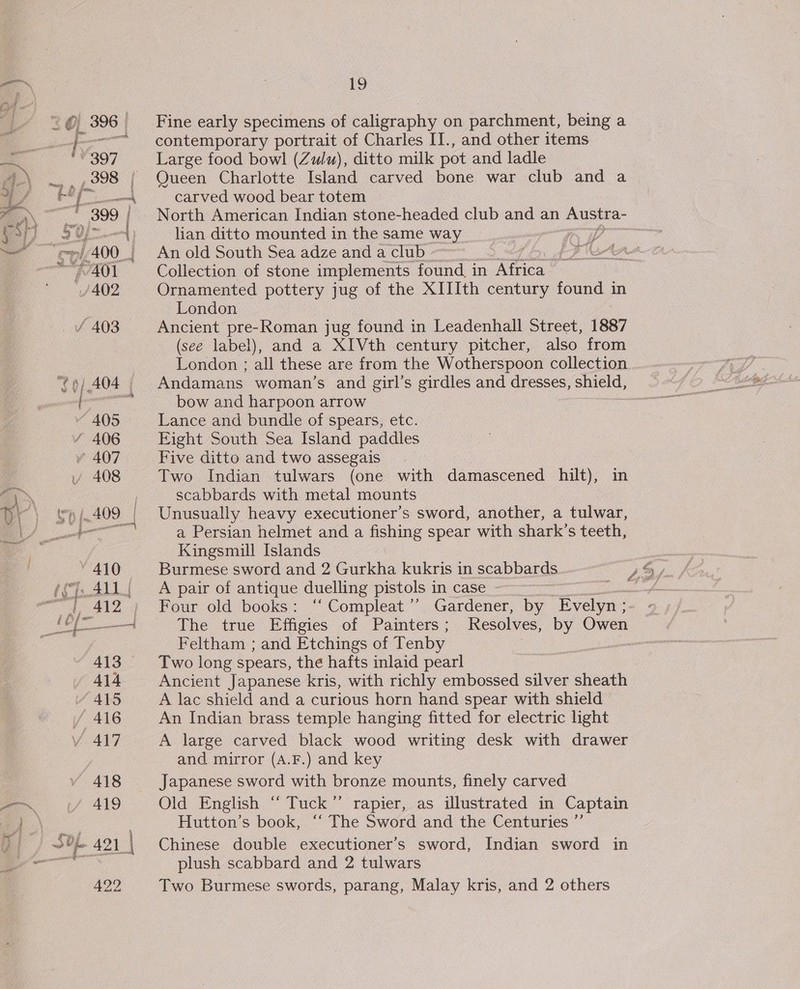 19
20/ 396 Fine early specimens of caligraphy on parchment, being a
contemporary portrait of Charles II., and other items
397 Large food bowl (Zulu), ditto milk pot and ladle
398 Queen Charlotte Island carved bone war club and a
carved wood bear totem
399 North American Indian stone-headed club and an Austra-
50/- lian ditto mounted in the same way
400 An old South Sea adze and a club
401 Collection of stone implements found in Africa
402 Ornamented pottery jug of the XIIIth century found in
London
403 Ancient pre-Roman jug found in Leadenhall Street, 1887
(see label), and a XIVth century pitcher, also from
London ; all these are from the Wotherspoon collection
404 Andamans woman's and girl's girdles and dresses, shield,
bow and harpoon arrow
405 Lance and bundle of spears, etc.
406 Eight South Sea Island paddles
407 Five ditto and two assegais
408 Two Indian tulwars (one with damascened hilt), in
scabbards with metal mounts
409 Unusually heavy executioner's sword, another, a tulwar,
a Persian helmet and a fishing spear with shark's teeth,
Kingsmill Islands
410 Burmese sword and 2 Gurkha kukris in scabbards
411 A pair of antique duelling pistols in case
412 Four old books: “ Compleat ” Gardener, by Evelyn ;
10/- The true Effigies of Painters; Resolves, by Owen
Feltham ; and Etchings of Tenby
413 Two long spears, the hafts inlaid pearl
414 Ancient Japanese kris, with richly embossed silver sheath
415 A lac shield and a curious horn hand spear with shield
416 An Indian brass temple hanging fitted for electric light
417 A large carved black wood writing desk with drawer
and mirror (A.F.) and key
418 Japanese sword with bronze mounts, finely carved
419 Old English “ Tuck ” rapier, as illustrated in Captain
Hutton's book, “ The Sword and the Centuries ”
50/- 421 Chinese double executioner's sword, Indian sword in
plush scabbard and 2 tulwars
422 Two Burmese swords, parang, Malay kris, and 2 others